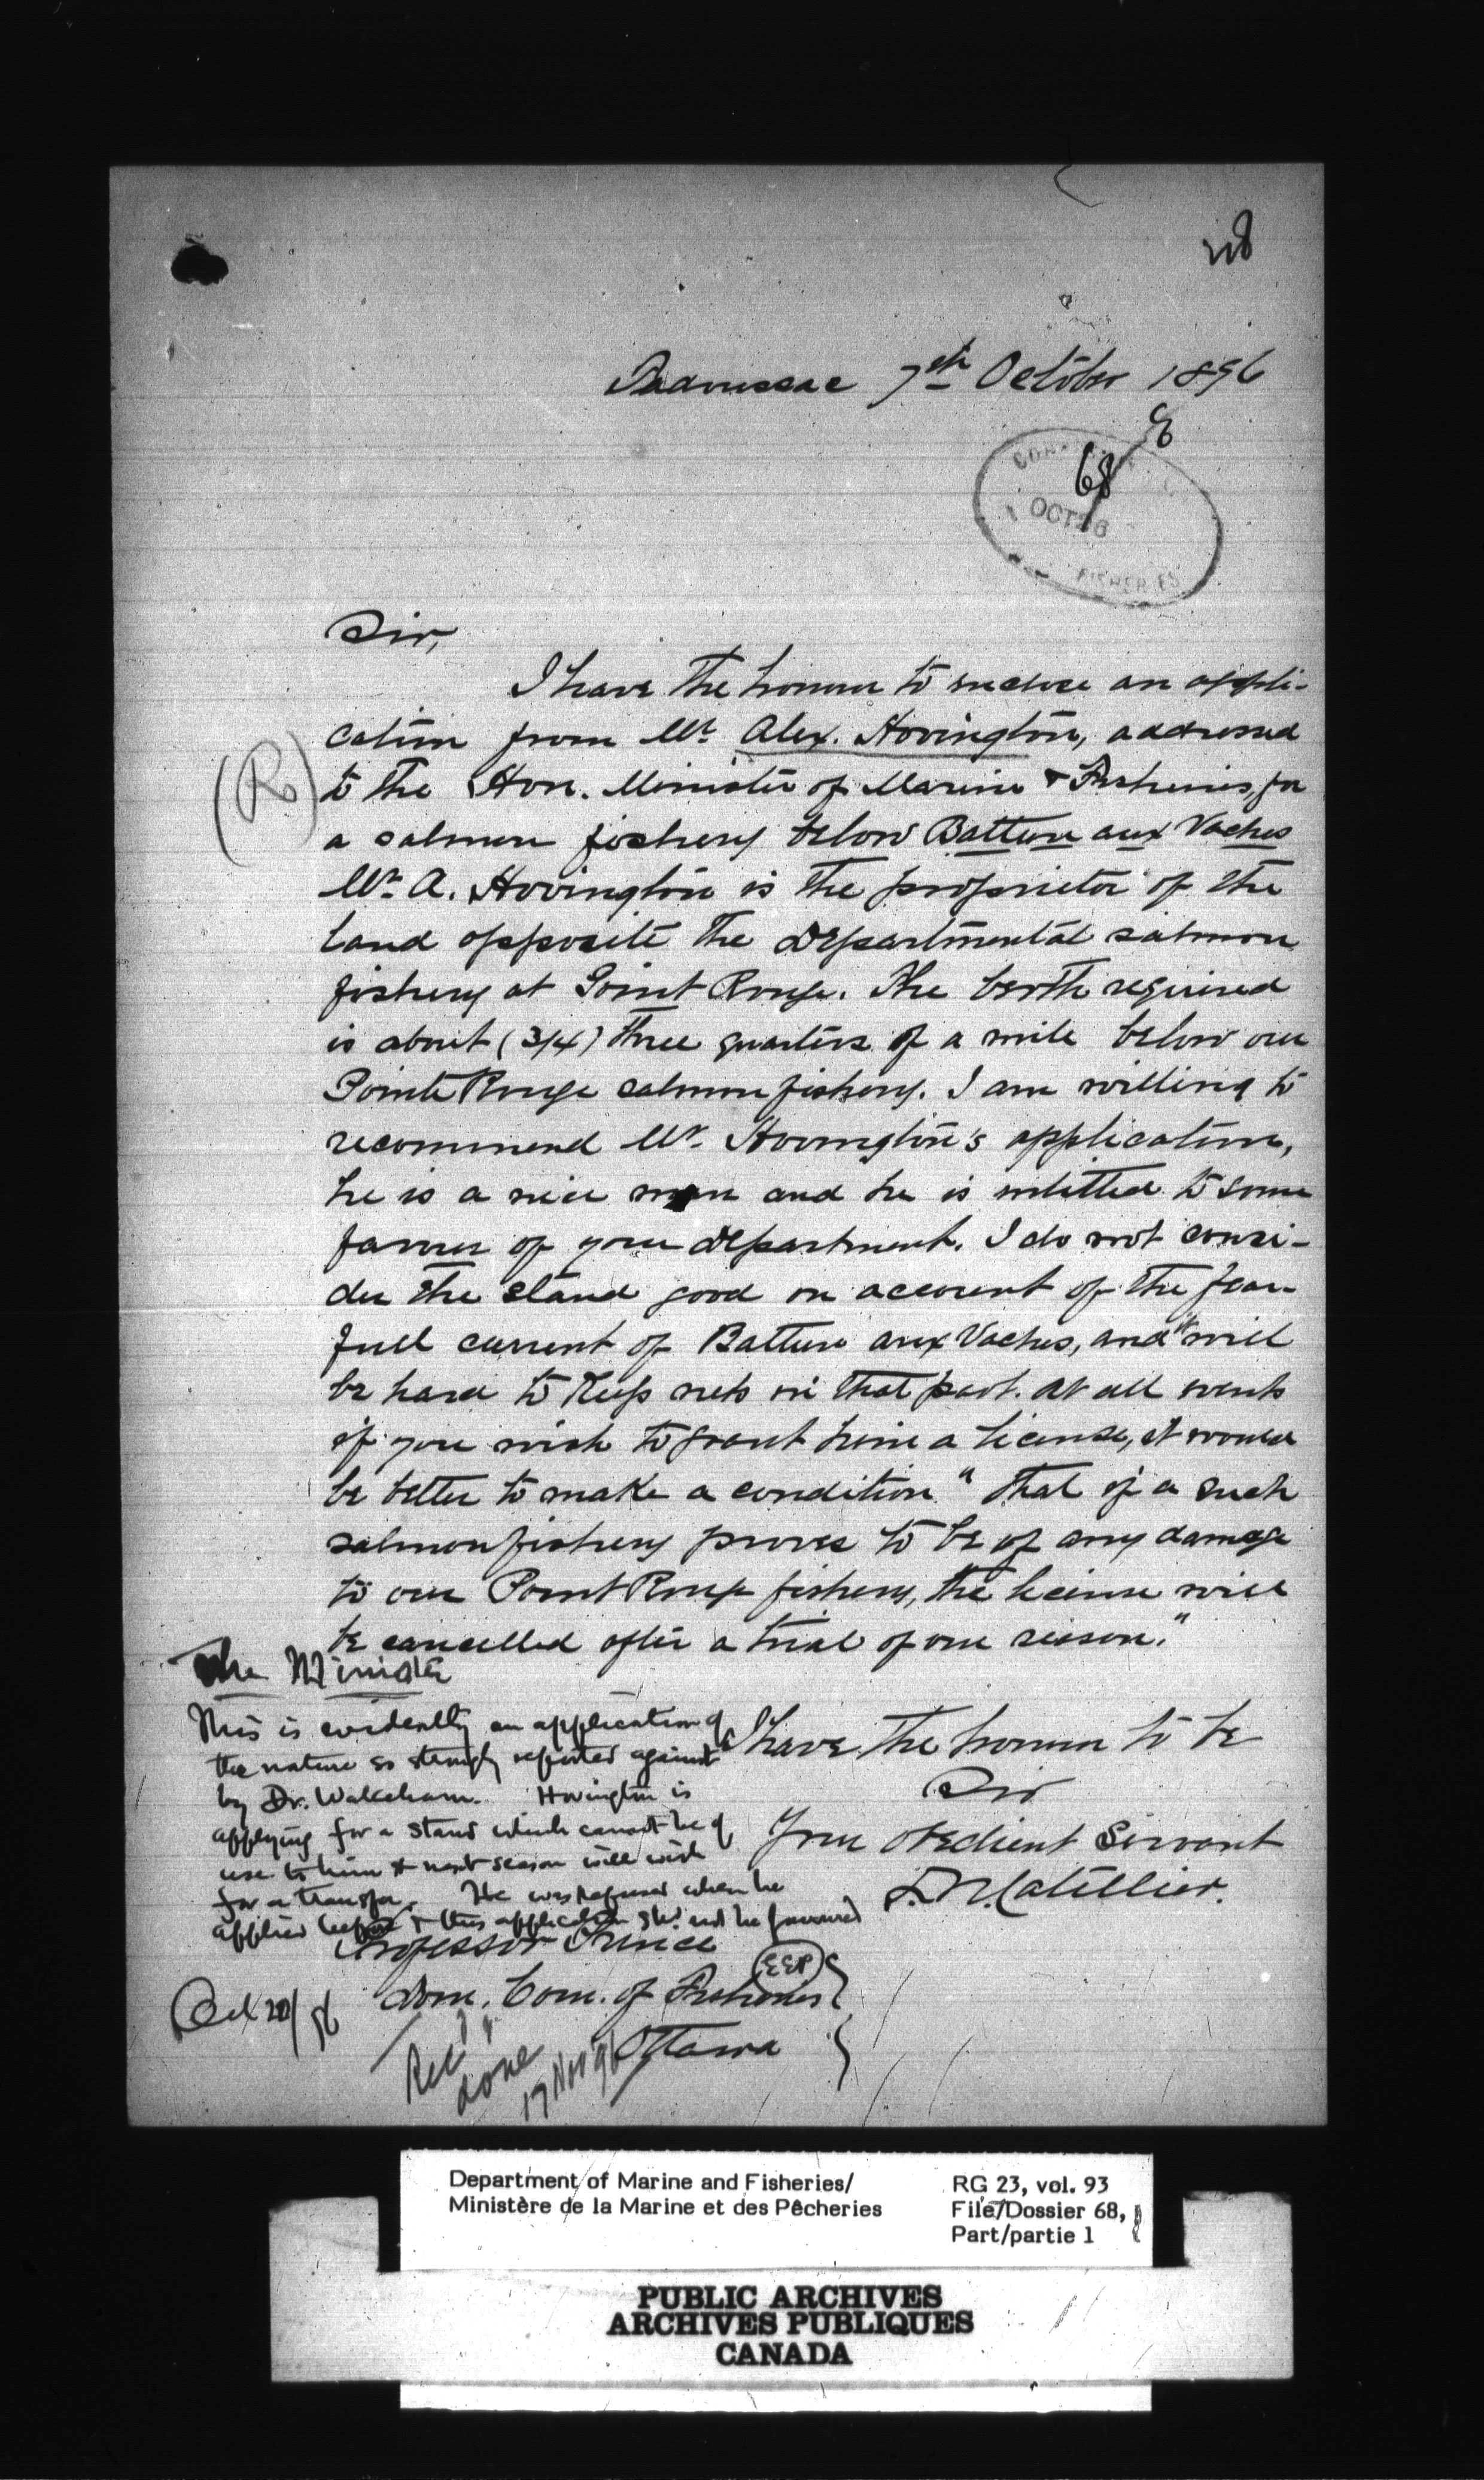 218
Tadoussac 7th October 1896
68
OCT 26
FISHERIES
Sir,
I have the honour to enclose an appli-
cation from Mr. Alex. Hovington, addressed
(R)
to the Hon. Minister of Marine & Fisheries, for
a salmon fishery below Batture aux Vaches
Mr. A. Hovington is the proprietor of the
land opposite the departmental salmon
fishery at Point Rouge. The berth required
is about (3/4) three quarters of a mile below our
Pointe Rouge salmon fishery. I am willing to
recommend Mr. Hovington's application,
he is a nice man and he is intitled to some
favour of your department. I do not consi-
der the stand good on account of the fear-
full current of Batture aux Vaches, and will
be hard to keep nets in that part. At all events
if you wish to grant him a license, it would
be better to make a condition "that if a such
salmon fishery proves to be of any damage
to our Point Rouge fishery, the license will
be cancelled after a trial of one season."
The Minister
This is evidently an application of
the nature so strongly reported against
by Dr. Wakeham. Hovington is
applying for a stand which cannot be of
use to him & next season will wish
for a transfer. He was refused when he
applied before & this application shd. not be favoured
EEP
Oct 20/96
I have the honour to be
Sir
Your obedient Servant
L. N. Catellier.
Professor Prince
Dom. Com. of Fisheries
Ottawa
done
17 Nov 96
Department of Marine and Fisheries/
Ministère de la Marine et des Pêcheries
RG 23, vol. 93
File/Dossier 68,
Part/partie 1
PUBLIC ARCHIVES
ARCHIVES PUBLIQUES
CANADA